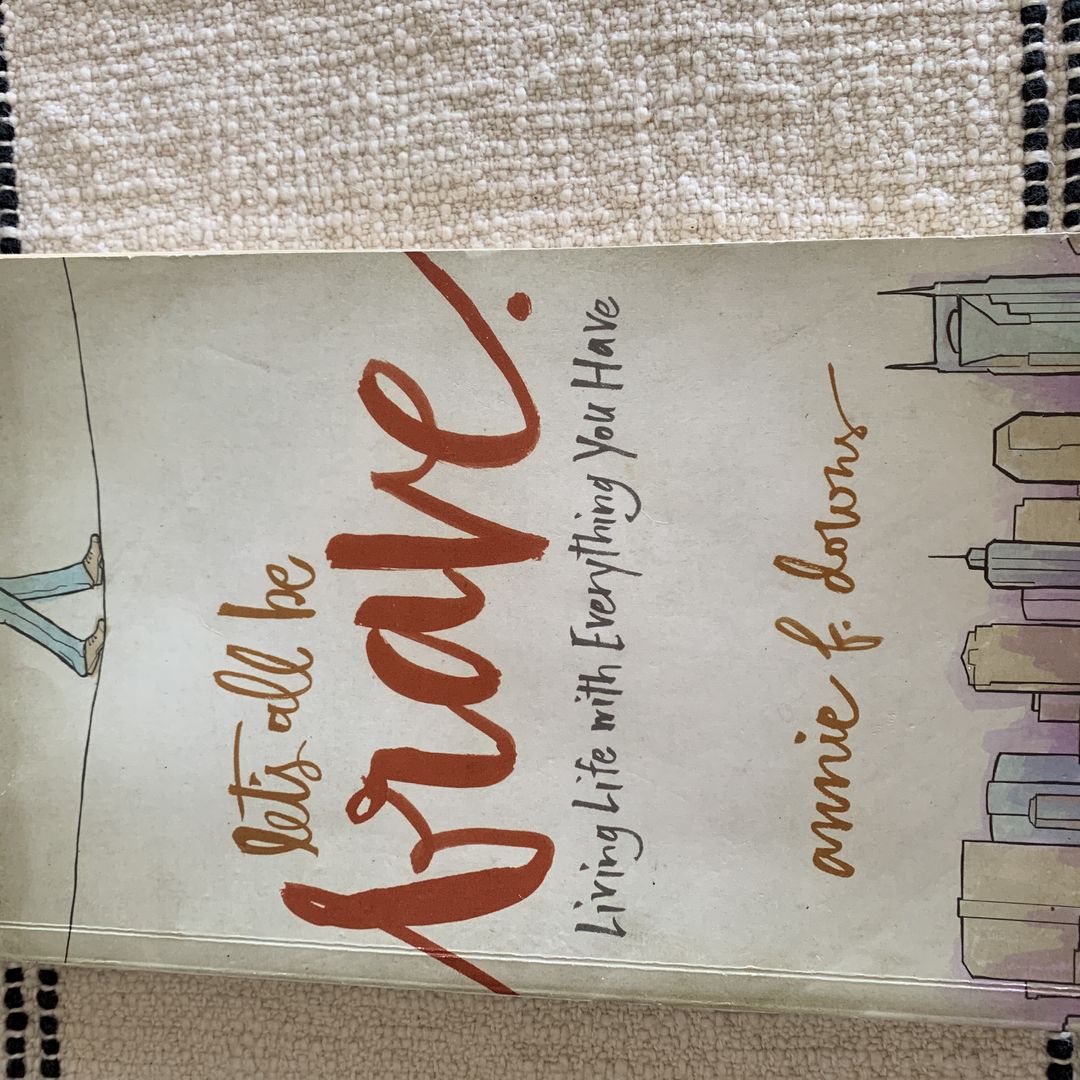 let's all be
brave.
Living Life with Everything You Have
annie f. downs